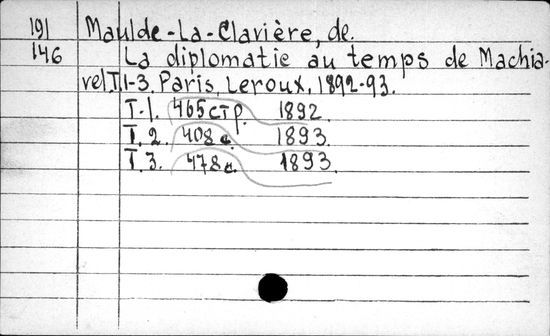 191 Maulde-La-Clavière, de.
146 La diplomatie au temps de Machia-
vel T.1-3. Paris, Leroux, 1892-93.
T.1. 465 стр. 1892.
T. 2. 408 с. 1893.
T. 3. 478 с. 1893.